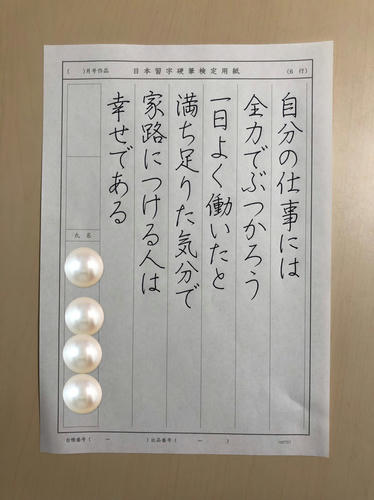 ( )月号作品
日本習字硬筆検定用紙
(6行)
自分の仕事には
全力でぶつかろう
一日よく働いたと
満ち足りた気分で
家路につける人は
幸せである
氏名
台帳番号( － )出品番号( － )